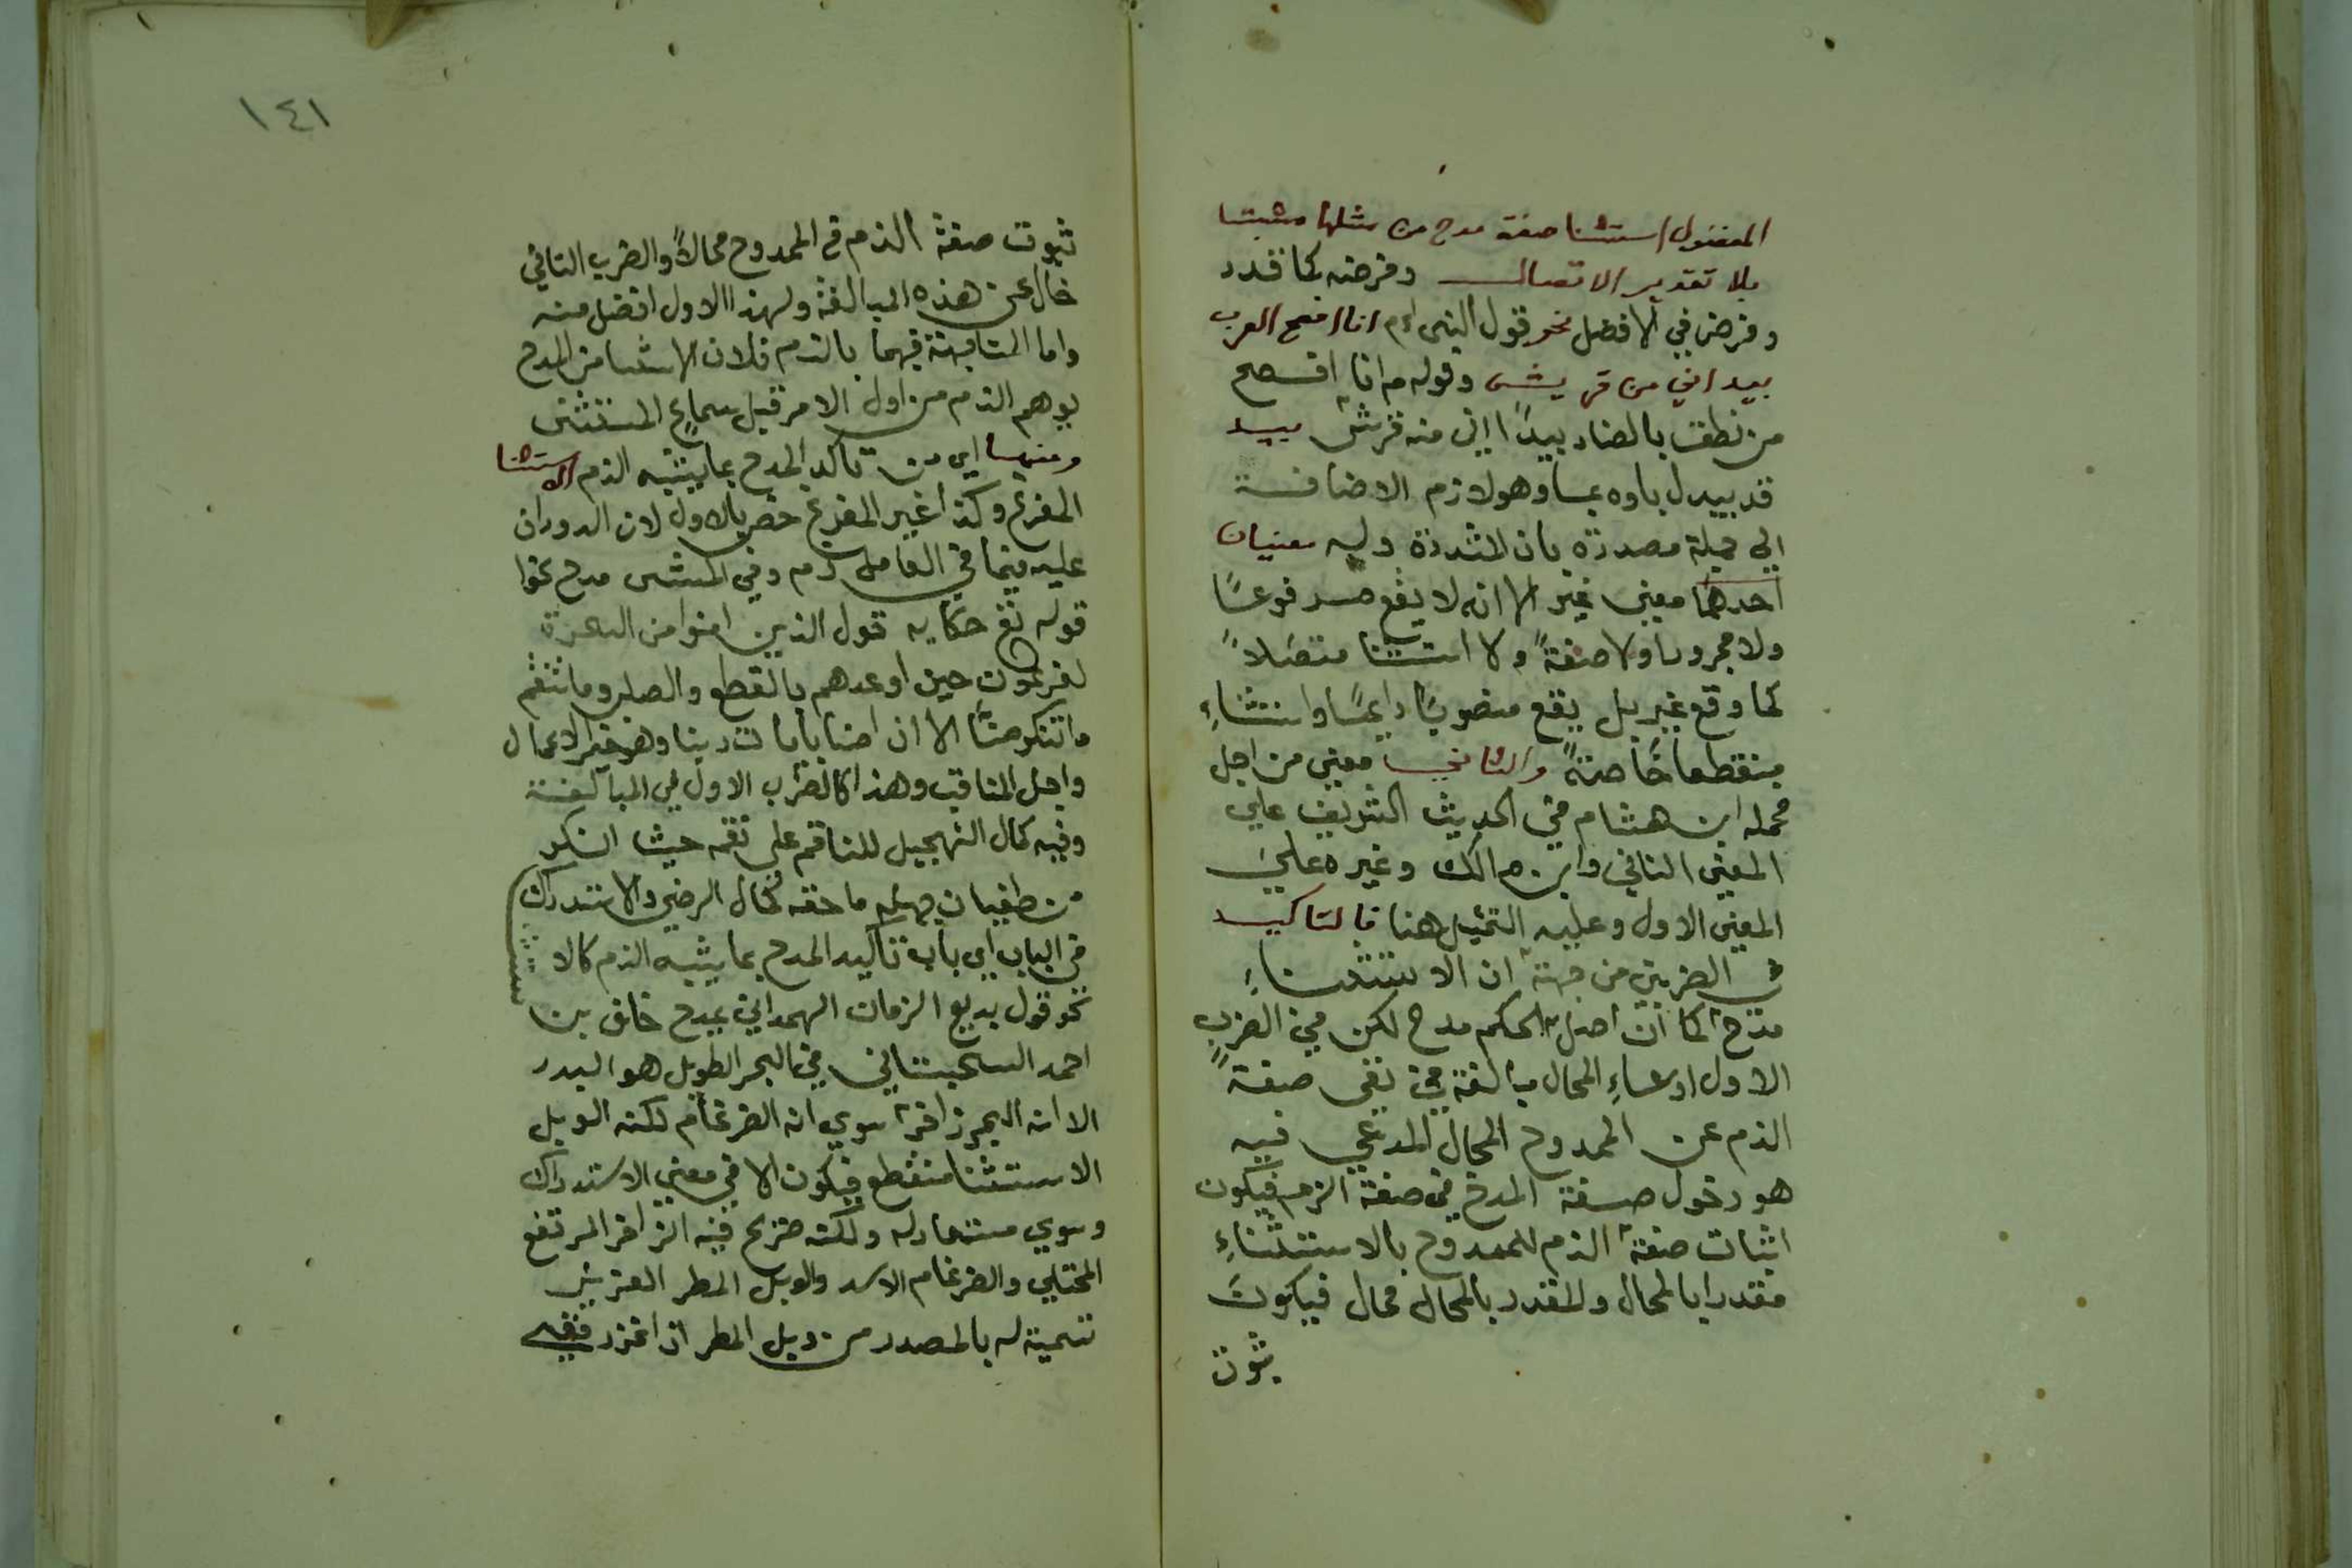 المفضول استثنا صفة مدح من مثلها مثبتا
بلا تقدير الاتصال وفرضه كما قدر
وفرض في الافضل نحو قول النبي انا افصح العرب
بيد اني من قريش وقوله م انا افصح
من نطق بالضاد بيد اني منه قريش بيد
قد يبدل باوه بما وهو لازم الاضافة
الي جملة مصدرة بان المشددة وله معنيان
احدهما معني غير الا انه لا يقع مرفوعًا
ولا مجرورا ولا صفةً ولا استثنا متصلاً
كما وقع غير بل يقع منصوبًا دايمًا واستثناءِ
منقطعا خاصةً والثاني معني من اجل
محمله ابن هشام في الحديث الشريف علي
المعني الثاني وابن مالك وغيره علي
المعني الاول وعليه التمثيل هنا فالتاكيد
في الضربين من جهة ان الاستثناءِ
مدح كما ان اصل الحكم مدح لكن في الضرب
الاول ادعاءِ المحال مبالغة في نفي صفةً
الذم عن الممدوح المحال المدعي فيه
هو دخول صفة المدح في صفة الذم فيكون
اثبات صفة الذم للممدوح بالاستثناءِ
مقدرا بالمحال والمقدر بالمحال محال فيكون
ثبوت
١٤١
ثبوت صفة الذم في الممدوح محالاً والضرب الثاني
خال عن هذه المبالغة ولهذا الاول افضل منه
واما المشابهة فيهما بالذم فلان الاستثنا من المدح
يوهم الذم من اول الامر قبل سماع المستثنى
ومنها اي من تاكيد المدح بما يشبه الذم الاستثنا
المفرغ وكذا غير المفرغ خص بالاول لان الدوران
عليه فيما في العامل ذم وفي المستثنى مدح نحوا
قوله تع حكايه قول الذين امنوا من السحرة
لفرعون حين اوعدهم بالقطع والصلب وما تنقم
ما تنكر منا الا ان امنا بايات ربنا وهو خير الاعمال
واجل المناقب وهذا كالضرب الاول في المبالغة
وفيه كمال التجهيل للناقم علي نقمه حيث انكر
من طغيان جهله ما حقه كمال الرضي والاستدراك
في الباب اي باب تاكيد المدح بما يشبه الذم كالا
نحو قول بديع الزمان الهمداني بمدح خلف بن
احمد السجستاني في البحر الطويل هو البدر
الا انه البحر زاخرا سوي انه الضرغام لكنه الوبل
الاستثنا منقطع فيكون الا في معني الاستدراك
وسوي مثله ولكنه صريح فيه الزاخر المرتفع
الممتلي والضرغام الاسد والوبل المطر الغزير
تسمية له بالمصدر من وبل المطر اذا غزر ففي